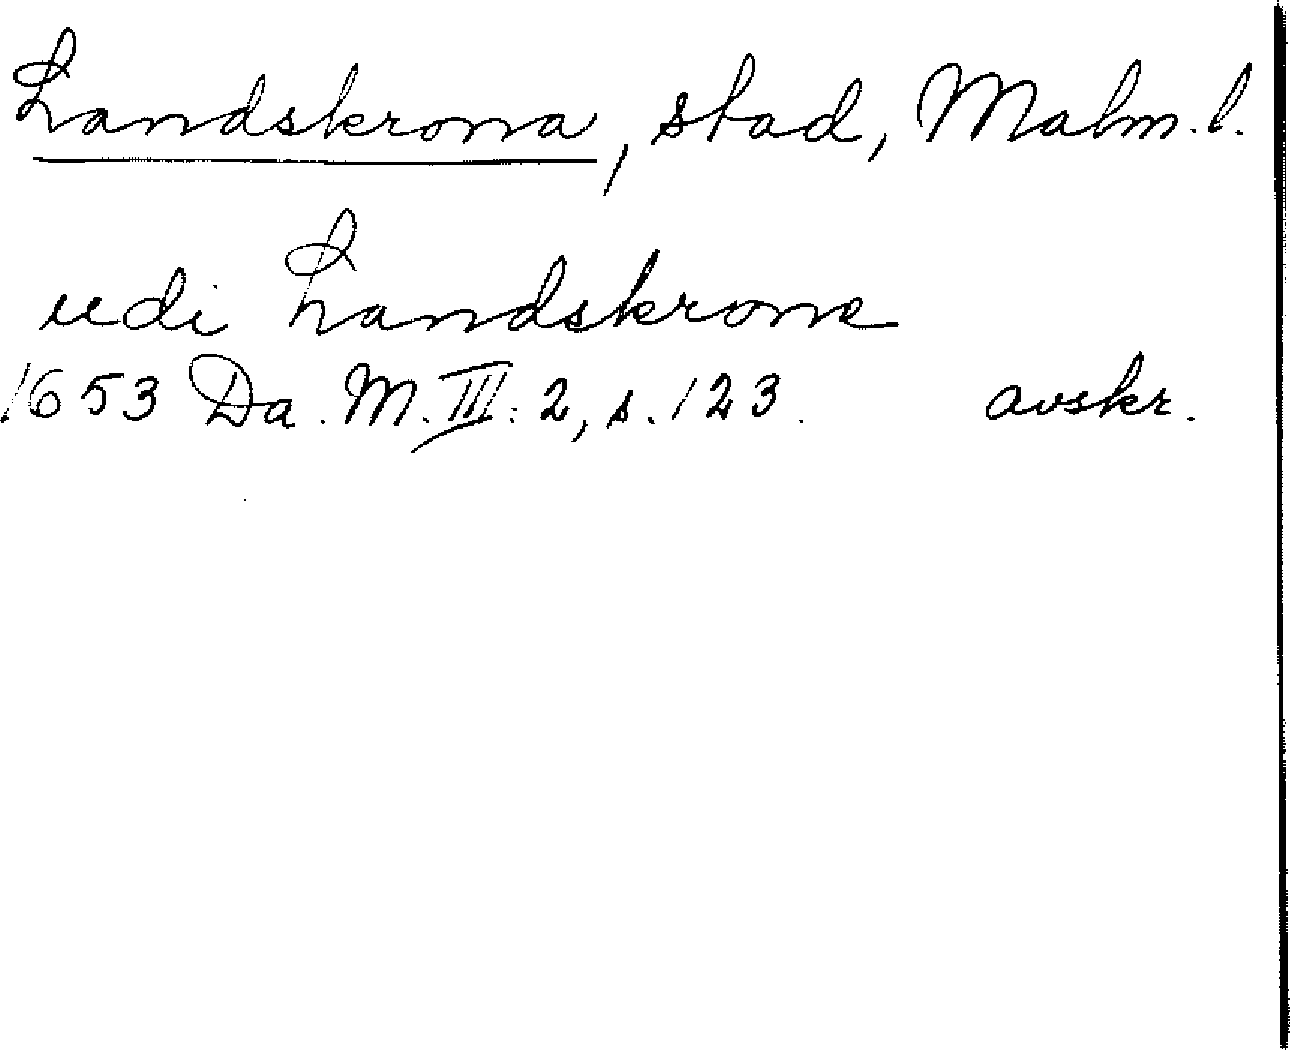 Landskrona, stad, Malm. l.
udi Landskrone
1653 Da. M. III: 2, s. 123. avskr.